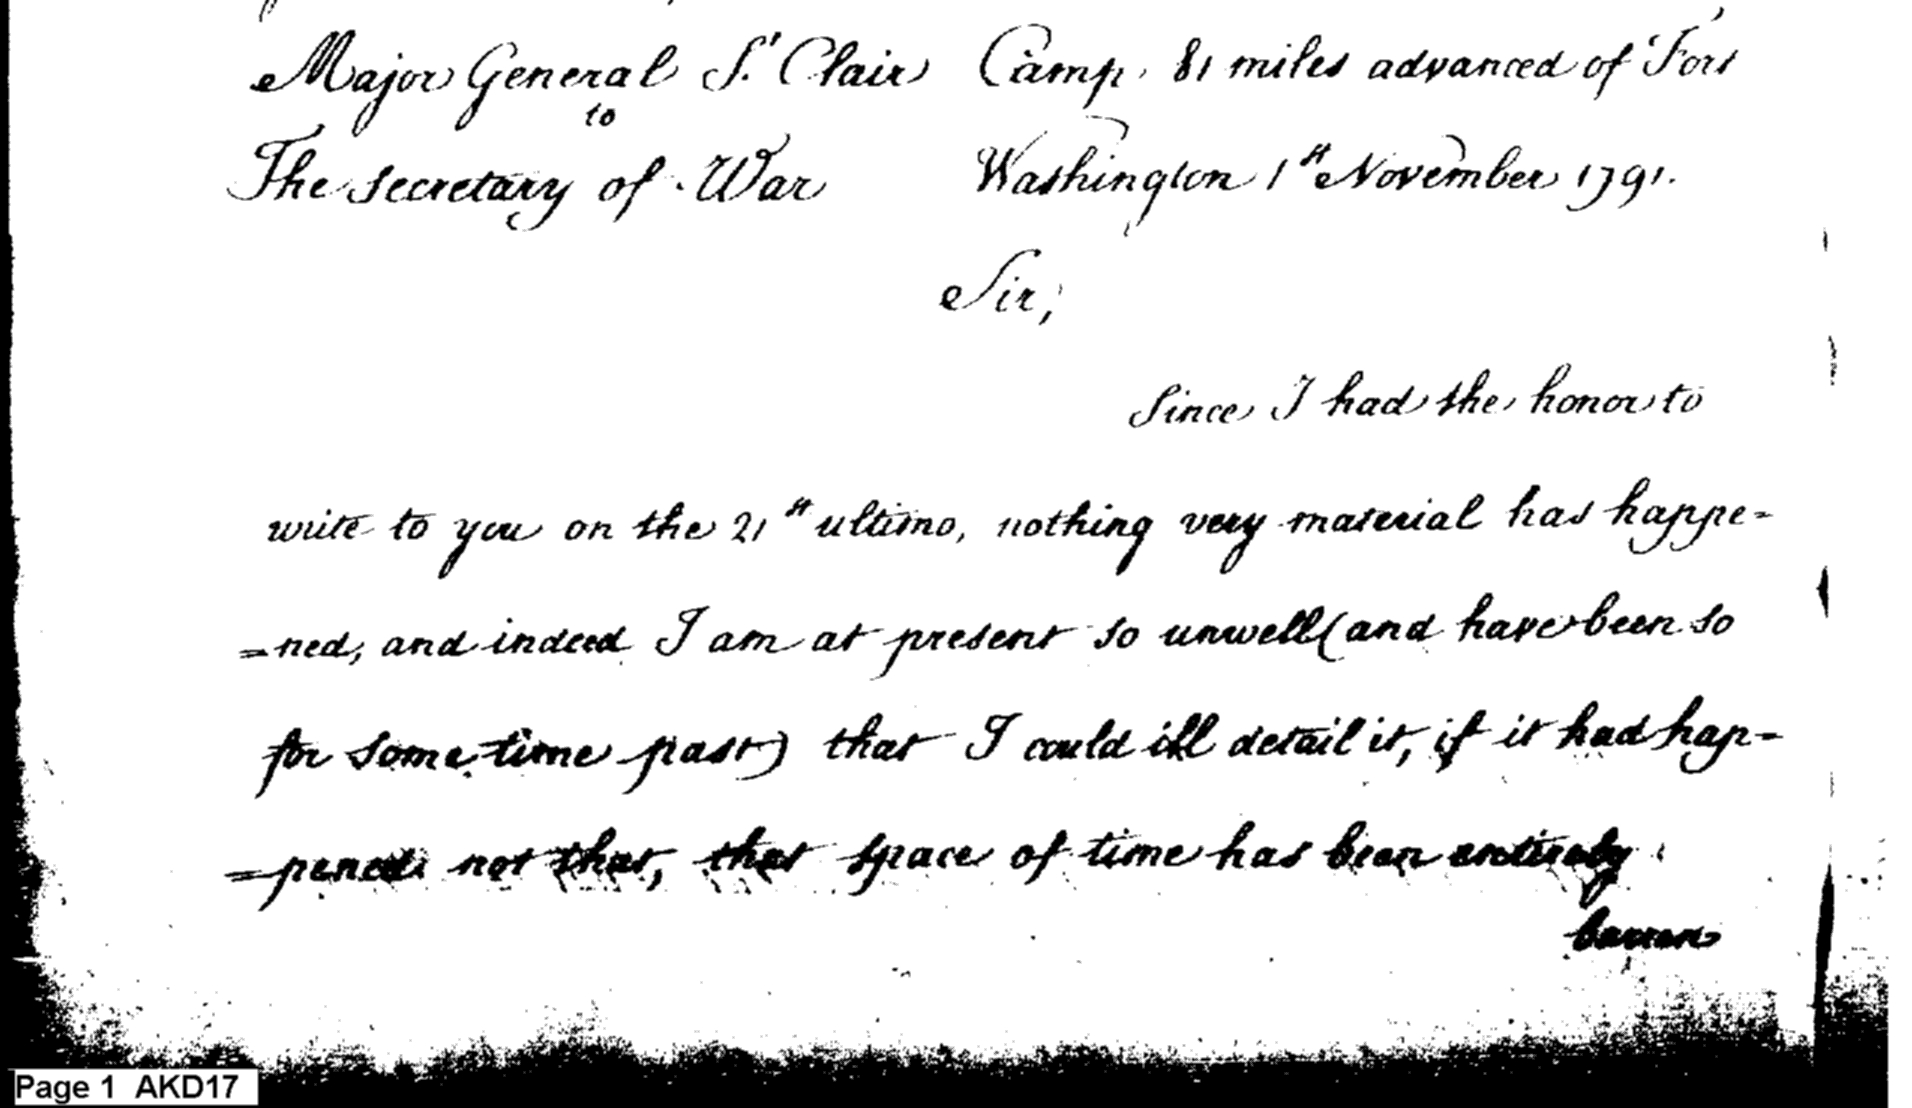 Major General St Clair
to
The Secretary of War
Camp, 81 miles advanced of Fort
Washington 1st November 1791.
Sir,
Since I had the honor to
write to you on the 21st ultimo, nothing very material has happe-
=ned, and indeed I am at present so unwell (and have been so
for some time past) that I could ill detail it, if it had hap-
=pened: not that, that space of time has been entirely
barren
Page 1 AKD17